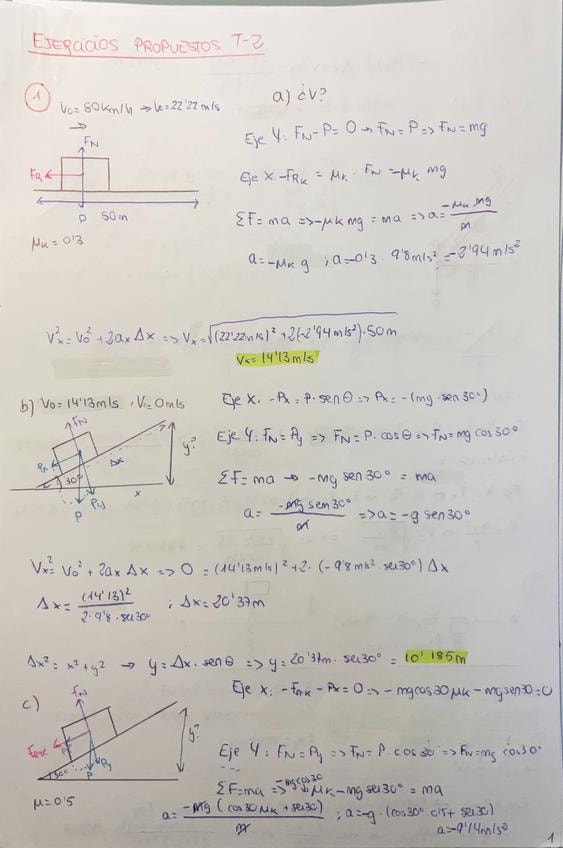 EJERCICIOS PROPUESTOS T-2
1
V₀ = 80km/h → V₀=22'22m/s
a) ¿v?
F_N
Eje Y: F_N - P = 0 → F_N = P => F_N = mg
F_R
Eje X: -F_RK = μ_K · F_N = -μ_K mg
P 50m
ΣF = ma => -μ_K mg = ma => a = -μ_K mg / m
μ_K = 0'3
a = -μ_K g ; a = -0'3 · 9'8m/s² = -2'94m/s²
V_x² = V₀² + 2a_x Δx => V_x = √(22'22m/s)² + 2(-2'94m/s²)·50m
V_x = 14'13m/s
b) V₀ = 14'13m/s , V = 0m/s
Eje X: -P_x = P · senθ => P_x = -(mg · sen30°)
F_N
y?
Eje Y: F_N = P_y => F_N = P · cosθ => F_N = mg cos30°
P_x 30° Δx
P P_y x
ΣF = ma → -mg sen30° = ma
a = -mg sen30° / m => a = -g sen30°
V_x² = V₀² + 2a_x Δx => 0 = (14'13m/s)² + 2 · (-9'8m/s² · sen30°) Δx
Δx = (14'13)² / 2·9'8·sen30° ; Δx = 20'37m
Δx² = x² + y² → y = Δx · senθ => y = 20'37m · sen30° = 10'185m
Eje X: -F_RK - P_x = 0 => -mgcos30μ_K - mgsen30 = 0
c)
F_N
y?
Eje Y: F_N = P_y => F_N = P · cos30 => F_N = mg cos30°
30° P P_y
ΣF = ma => -mgcos30 μ_K - mg sen30° = ma
μ = 0'5
a = -mg (cos30 μ_K + sen30) / m ; a = -g · (cos30° · 0'5 + sen30)
a = -9'14m/s²
1